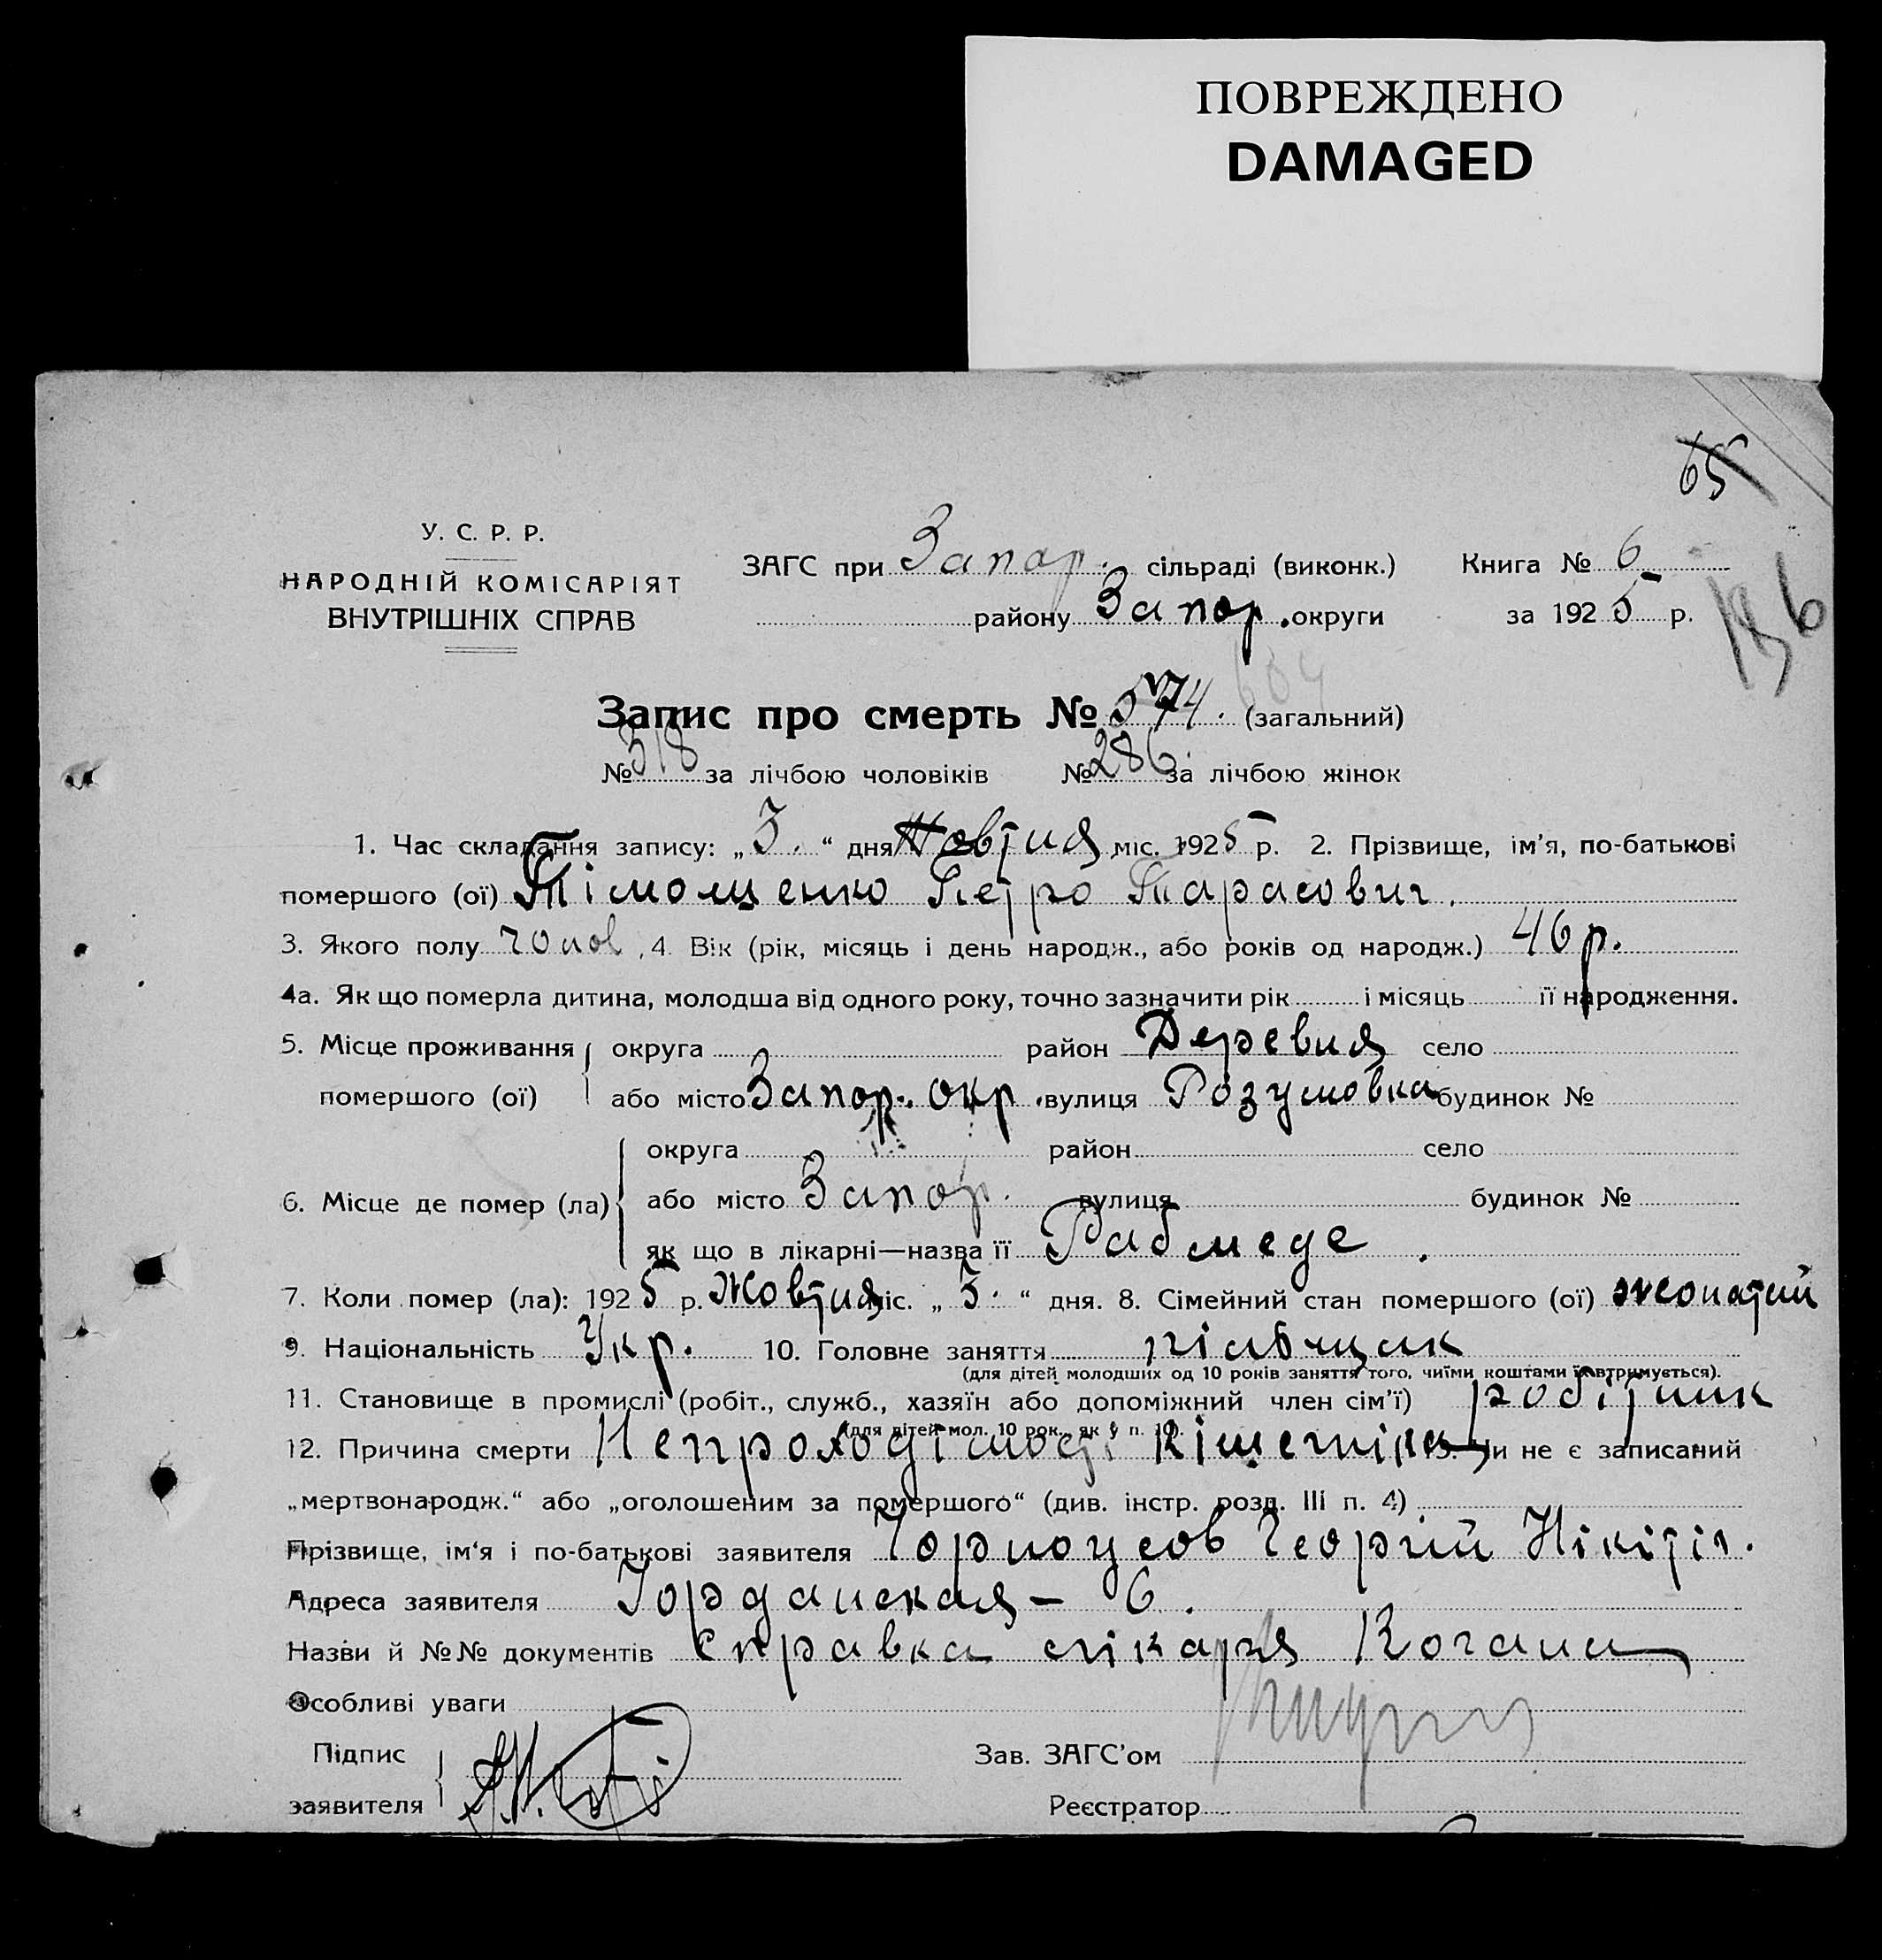 ПОВРЕЖДЕНО
DAMAGED
65
У. С. Р. Р.
НАРОДНІЙ КОМІСАРІЯТ
ВНУТРІШНІХ СПРАВ
ЗАГС при Запор. сільраді (виконк.) Книга № 6
району Запор. округи за 1925 р.
196
Запис про смерть № 574. (загальний) 604
№ 318 за лічбою чоловіків № 286 за лічбою жінок
1. Час складання запису: „3.“ дня Жовтня міс. 1925 р. 2. Прізвище, ім'я, по-батькові
помершого (ої) Тімошенко Петро Тарасович.
3. Якого полу чолов, 4. Вік (рік, місяць і день народж., або років од народж.) 46 р.
4а. Як що померла дитина, молодша від одного року, точно зазначити рік і місяць її народження.
5. Місце проживання округа район Деревня село
помершого (ої) або місто Запор. окр. вулиця Розумовка будинок №
округа район село
6. Місце де помер (ла) або місто Запор. вулиця будинок №
як що в лікарні—назва її Рабмеде.
7. Коли помер (ла): 1925 р. Жовтня міс. „3.“ дня. 8. Сімейний стан помершого (ої) жонатий
9. Національність Укр. 10. Головне заняття
(для дітей молодших од 10 років заняття того, чиїми коштами їх втримується).
11. Становище в промислі (робіт., служб., хазяїн або допоміжний член сім'ї) робітник
(для дітей мол. 10 рок., як у п. 10).
12. Причина смерти Непроходімость кішечніка 13. Чи не є записаний
„мертвонародж.“ або „оголошеним за помершого“ (див. інстр. розд. III п. 4)
Прізвище, ім'я і по-батькові заявителя Чорноусов Георгій Нікітіч.
Адреса заявителя Іорданская – 6.
Назви й №№ документів справка лікаря Когана
Особливі уваги
Підпис
заявителя
Зав. ЗАГС'ом
Реєстратор